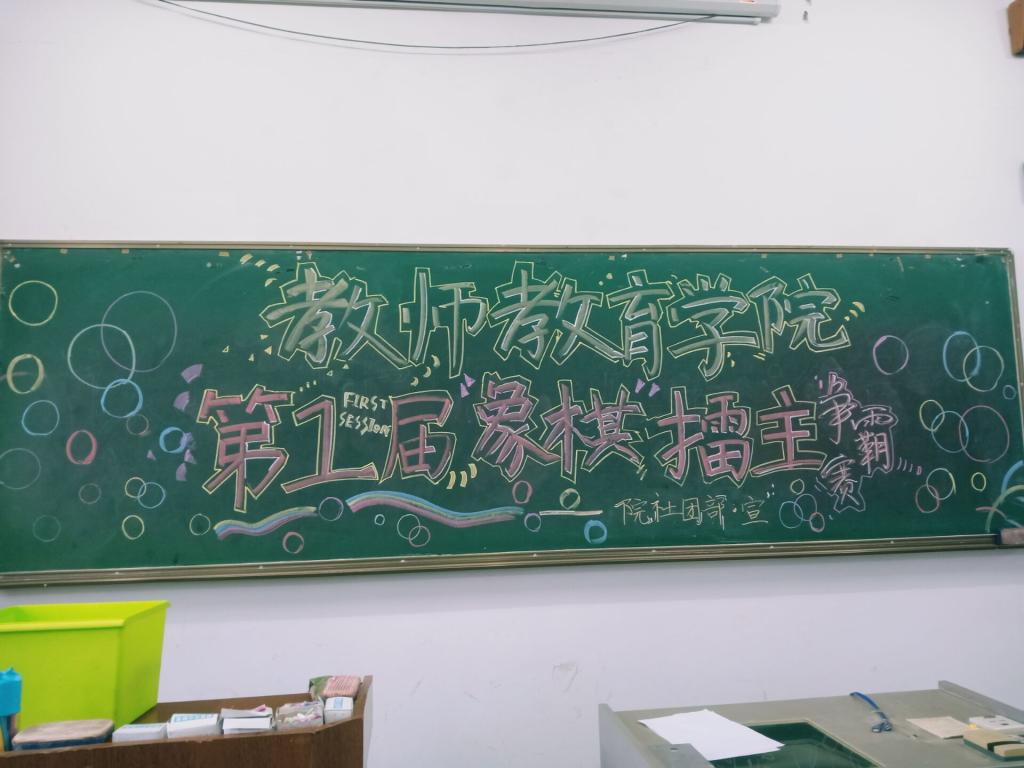 教师教育学院
第1届象棋擂主争霸赛
FIRST
SESSION
院社团部·宣